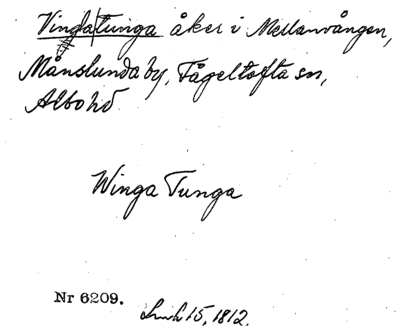 Vinga|tunga åker i Mellanvången,
Månslunda by, Fågeltofta sn,
Albo hd
Winga Tunga
Nr 6209.
15, 1812.